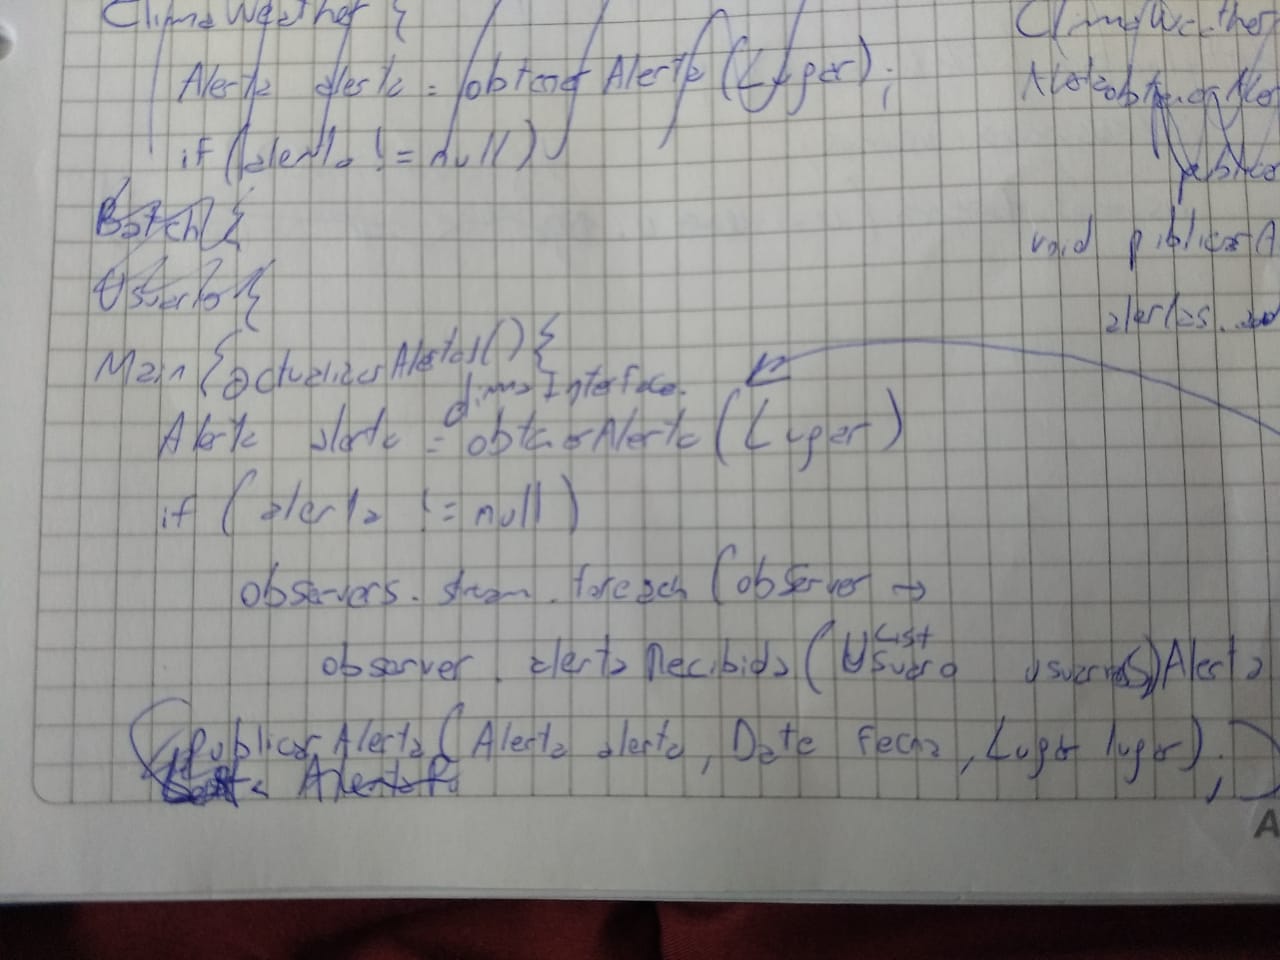 ClimaWeather {
Alerta alerta = obtenerAlerta (Lugar);
if (alerta != null)
Batch {
Usuario {
Main { actualizarAlertas() {
climaInterface.
Alerta alerta = obtenerAlerta (Lugar)
if (alerta != null)
observers. stream. foreach (observer →
List
observer. alertaRecibida (Usuario usuarios) Alerta
publicarAlerta (Alerta alerta, Date fecha, Lugar lugar);
ClimaWeather
publicar
void publicarA
alertas.
A